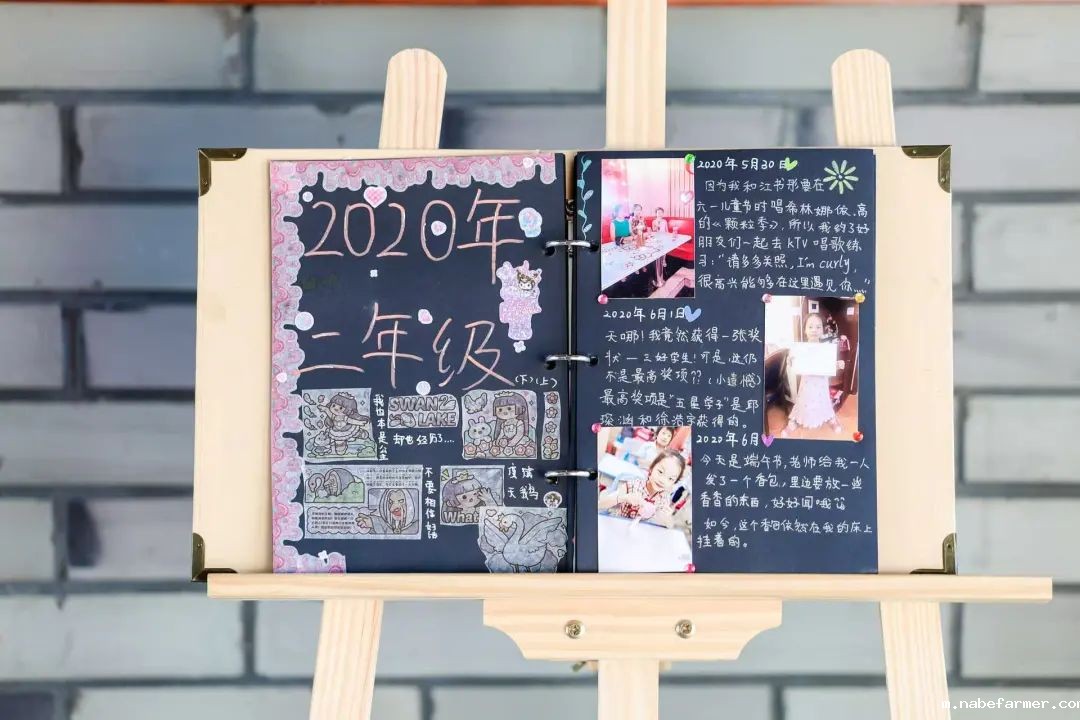 2020年
二年级
(下)(上)
我也本是公主
SWAN
LAKE
却也经历了....
不要相信女巫的话
What
废墟
天鹅
2020年5月30日
因为我和江书彤要在
六一儿童节时唱希林娜依.高
的《颗粒季》,所以我约了好
朋友们一起去KTV唱歌练
习:“请多多关照,I'm curly,
很高兴能够在这里遇见你...”
2020年6月1日
天哪!我竟然获得一张奖
状—三好学生!可是,这仍
不是最高奖项??(小遗憾)
最高奖项是“五星学子”是
涵和徐浩宇获得的。
2020年6月
今天是端午节,老师给我一人
发了一个香包,里边要放一些
香香的东西,好好闻哦
如今,这个香囊依然在我的床上
挂着的。
m.nabefarmer.com